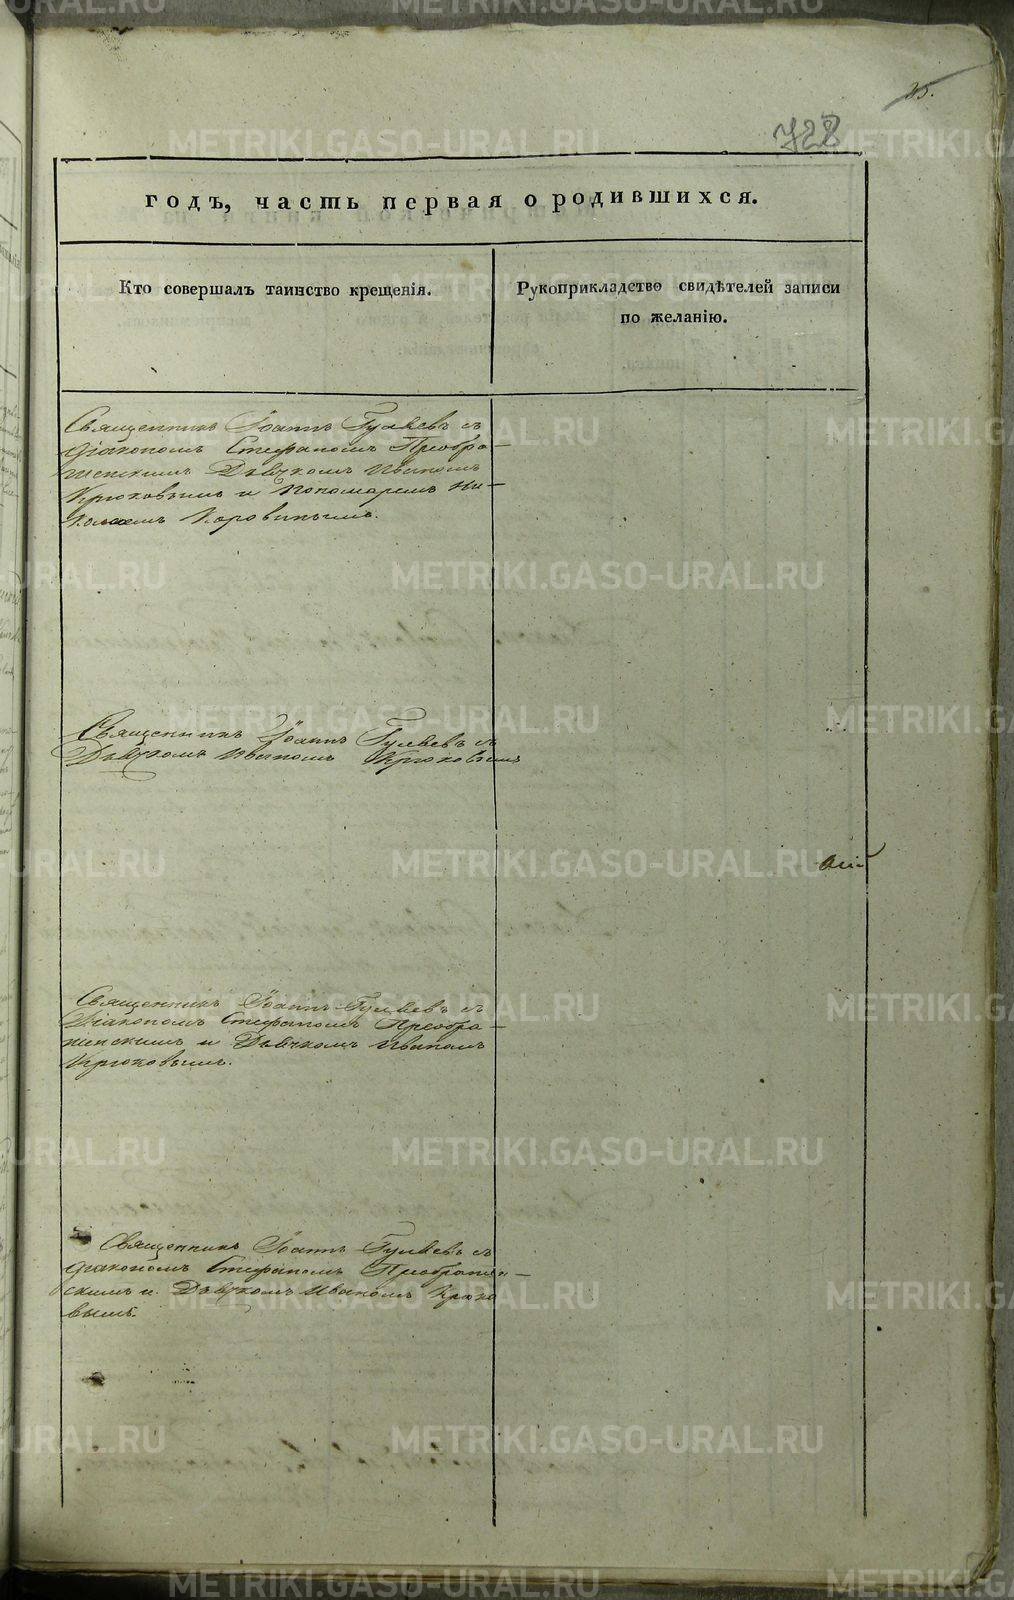 25.
728
годъ, часть первая о родившихся.
Кто совершалъ таинство крещенія.
Рукоприкладство свидѣтелей записи
по желанію.
Священникъ Іоаннъ Гуляевъ съ
діакономъ Стефаномъ Преобра-
женскимъ Дьячкомъ Иваномъ
Крюковымъ и Пономаремъ Ни-
колаемъ Коровинымъ.
Священникъ Іоаннъ Гуляевъ съ
Дьячкомъ Иваномъ Крюковымъ
Священникъ Іоаннъ Гуляевъ съ
Діакономъ Стефаномъ Преобра-
женскимъ и Дьячкомъ Иваномъ
Крюковымъ.
Священникъ Іоаннъ Гуляевъ съ
діакономъ Стефаномъ Преображен-
скимъ и Дьячкомъ Иваномъ Крюко
вымъ.
METRIKI.GASO-URAL.RU